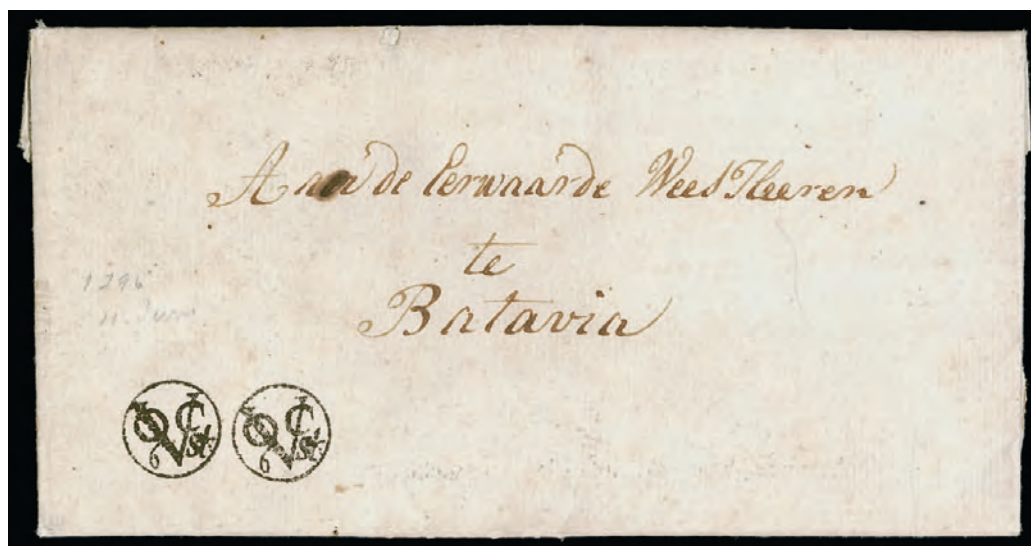 Aan de Eerwaarde WeesHeeren
te
Batavia
1796
11. Juni
VOC 6 St VOC 6 St